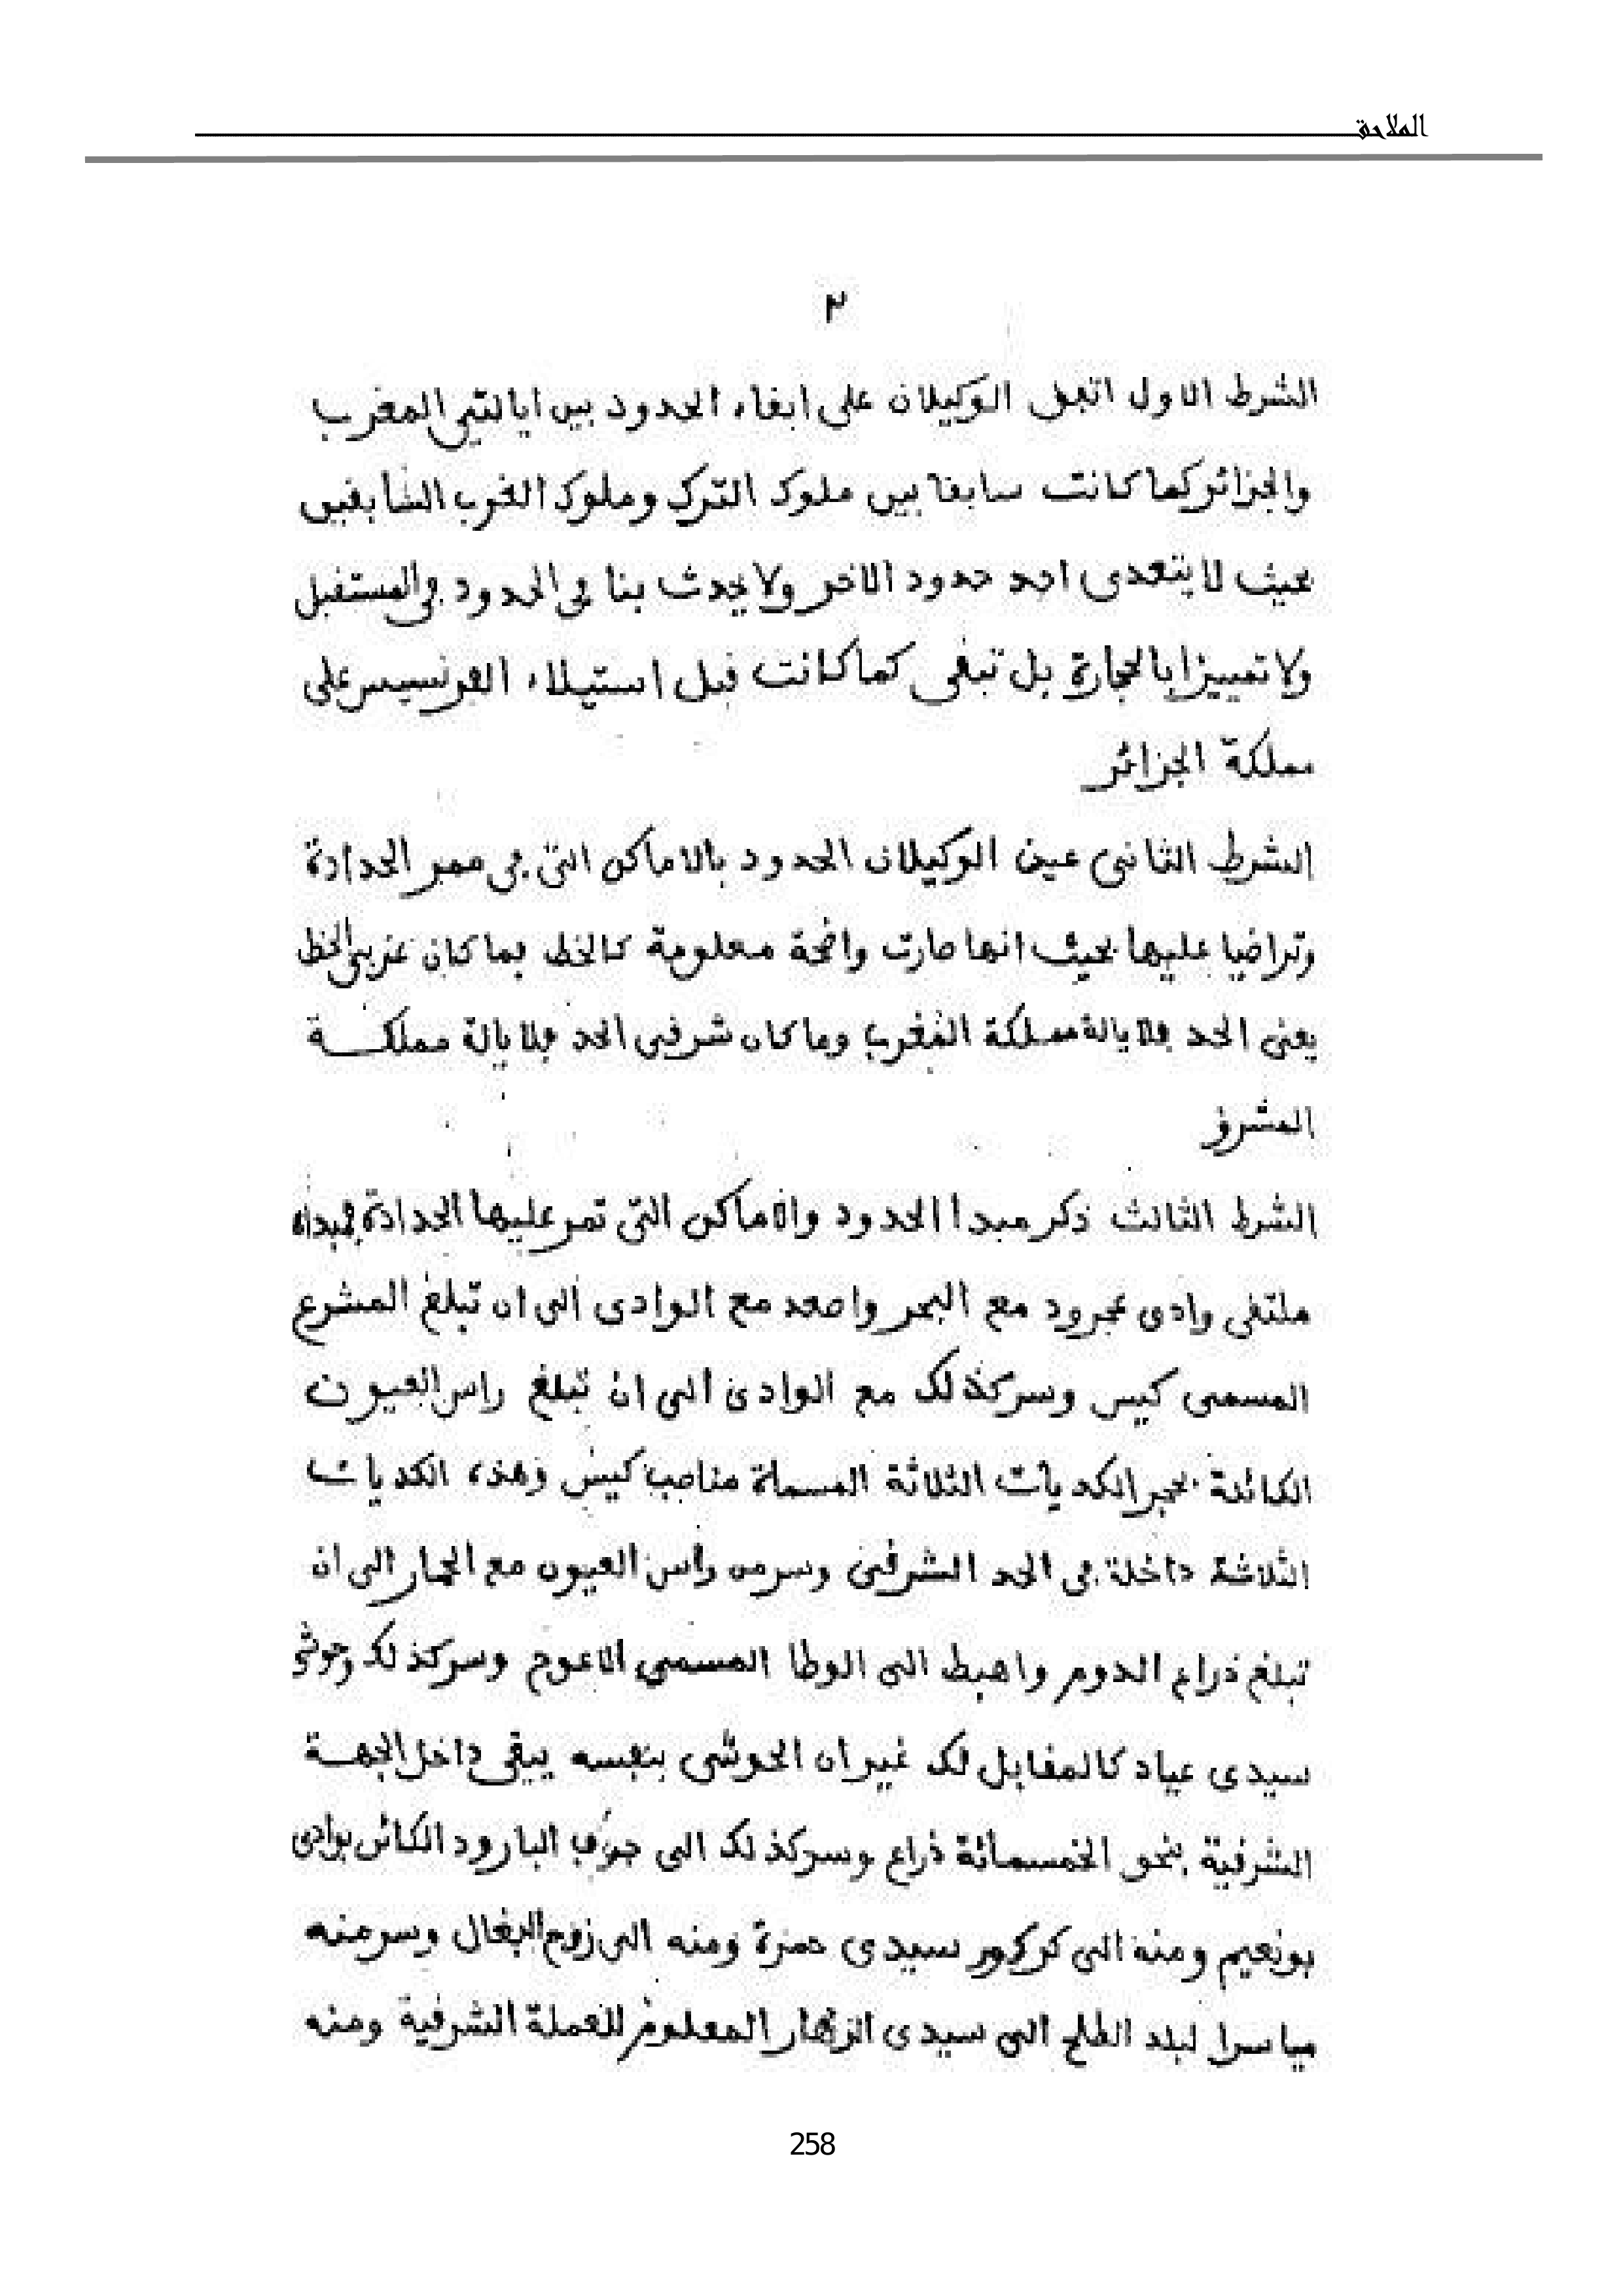 الملاحق
٢
الشرط الاول اتفق الوكيلان على ابقاء الحدود بين ايالتي المغرب
والجزائر كما كانت سابقا بين ملوك الترك وملوك الغرب السابقين
بحيث لا يتعدى احد حدود الاخر ولا يحدث بنا في الحدود في المستقبل
ولا تمييزا بالحجارة بل تبقى كما كانت قبل استيلاء الفرنسيس على
مملكة الجزائر
الشرط الثاني عين الوكيلان الحدود بالاماكن التي في ممر الحدادة
وتراضيا عليها بحيث انها صارت واضحة معلومة كالخط بما كان غربي الخط
يعني الحد فلايالة مملكة المغرب وما كان شرقي الحد فلايالة مملكة
المشرق
الشرط الثالث ذكر مبدا الحدود والاماكن التي تمر عليها الحدادة فمبداه
ملتقى وادى عجرود مع البحر واصعد مع الوادى الى ان تبلغ المشرع
المسمى كيس وسر كذلك مع الوادى الى ان تبلغ راس العيون
الكائنة بحجر الكديات الثلاثة المسماة مناصب كيس وهذه الكديات
الثلاثة داخلة في الحد الشرقي وسر من رأس العيون مع الحمار الى ان
تبلغ ذراع الدوم واهبط الى الوطا المسمى الاعوج وسر كذلك وحوش
سيدى عياد كالمقابل لك غير ان الحوش بنفسه يبقى داخل الجهة
الشرقية بنحو الخمسمائة ذراع وسر كذلك الى جرف البارود الكائن بوادى
بونعيم ومنه الى كركور سيدى حمزة ومنه الى زوج البغال وسر منه
مياسرا لبلد الطلح الى سيدى الزهار المعلوم للعملة الشرقية ومنه
258